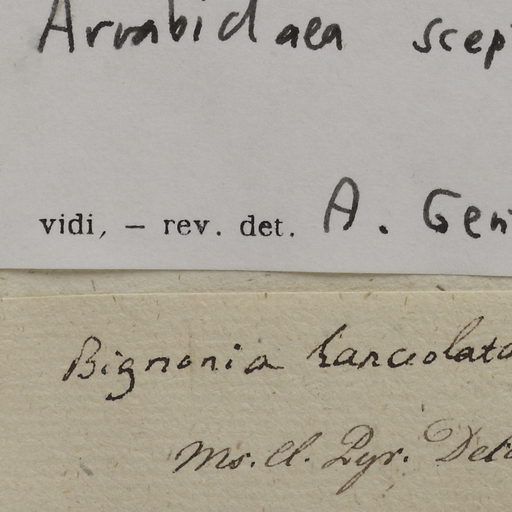 Arrabidaea scep
vidi, – rev. det. A. Gen
Bignonia lanceolata
Ms. Cl. Pyr. Dec